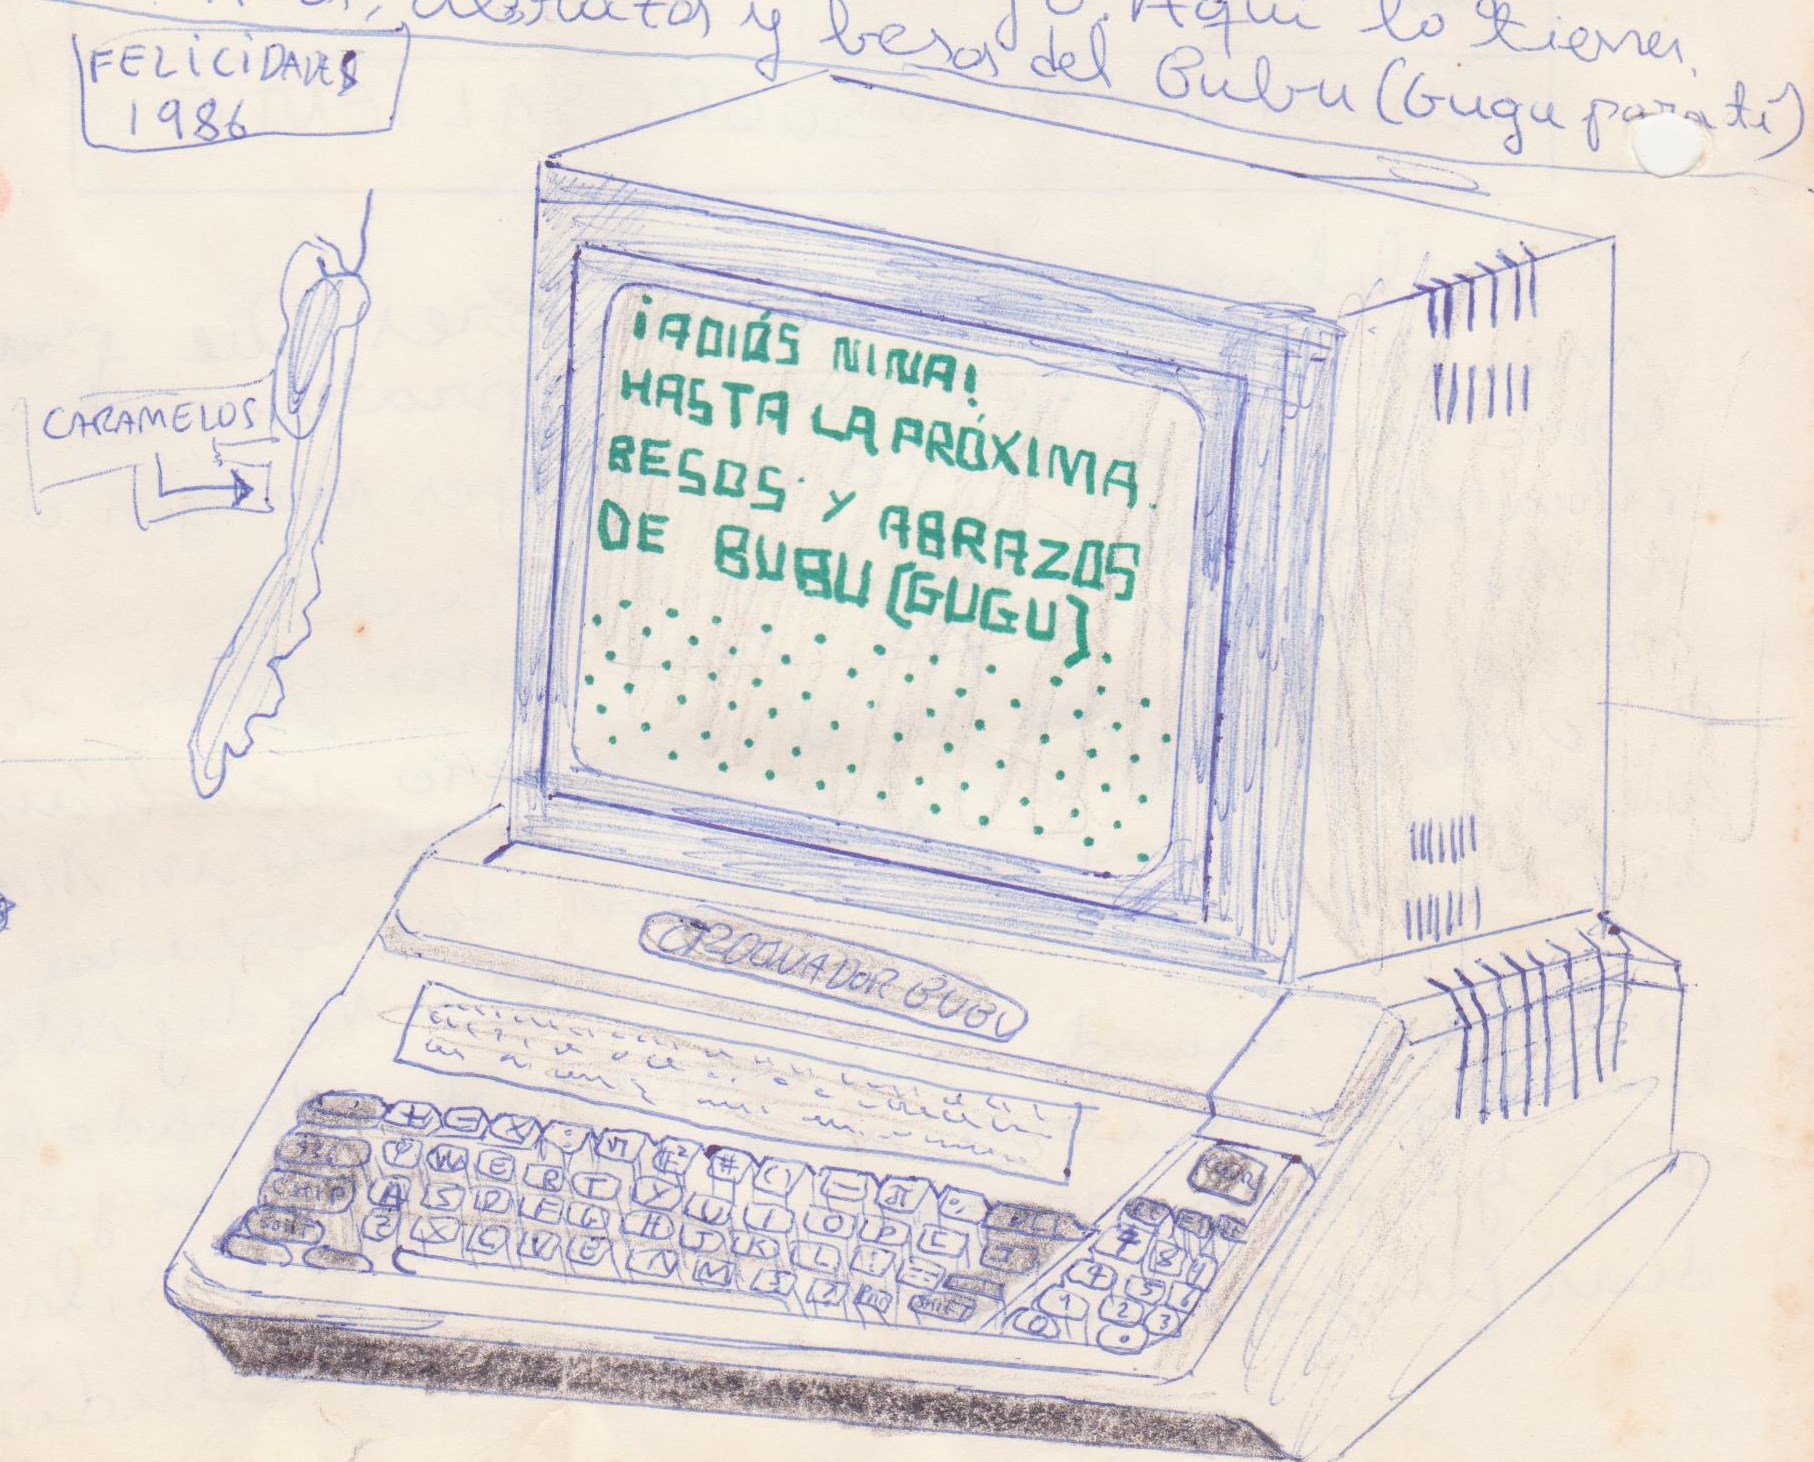 abrazos y besos del Bubu (Gugu para ti)
Aquí lo tienes,
FELICIDADES
1986
CARAMELOS
¡ADIÓS NINA!
HASTA LA PRÓXIMA.
BESOS Y ABRAZOS
DE BUBU (GUGU)
ORDENADOR BUBU
+ - X
Q W E R T Y U I O P
A S D F G H J K L
Z X C V B N M
SHIFT
7 8 9
4 5 6
1 2 3
0 .